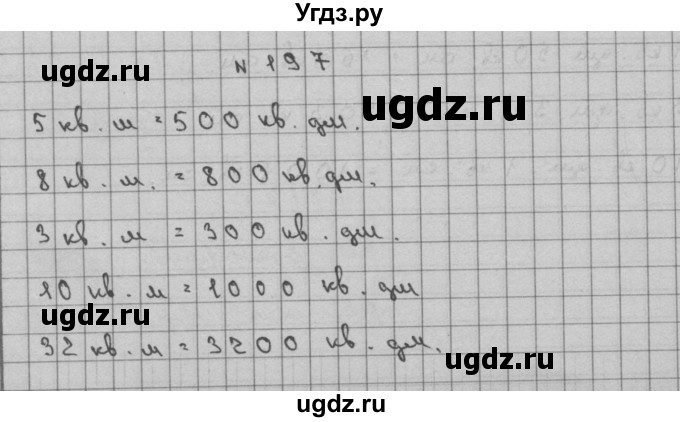 Угдз.ру
ugdz.ru
N 197
ugdz.ru
5 кв. м = 500 кв. дм.
8 кв. м. = 800 кв. дм.
3 кв. м = 300 кв. дм.
10 кв. м = 1000 кв. дм
ugdz.ru
32 кв. м = 3200 кв. дм.
ugdz.ru
ugdz.ru